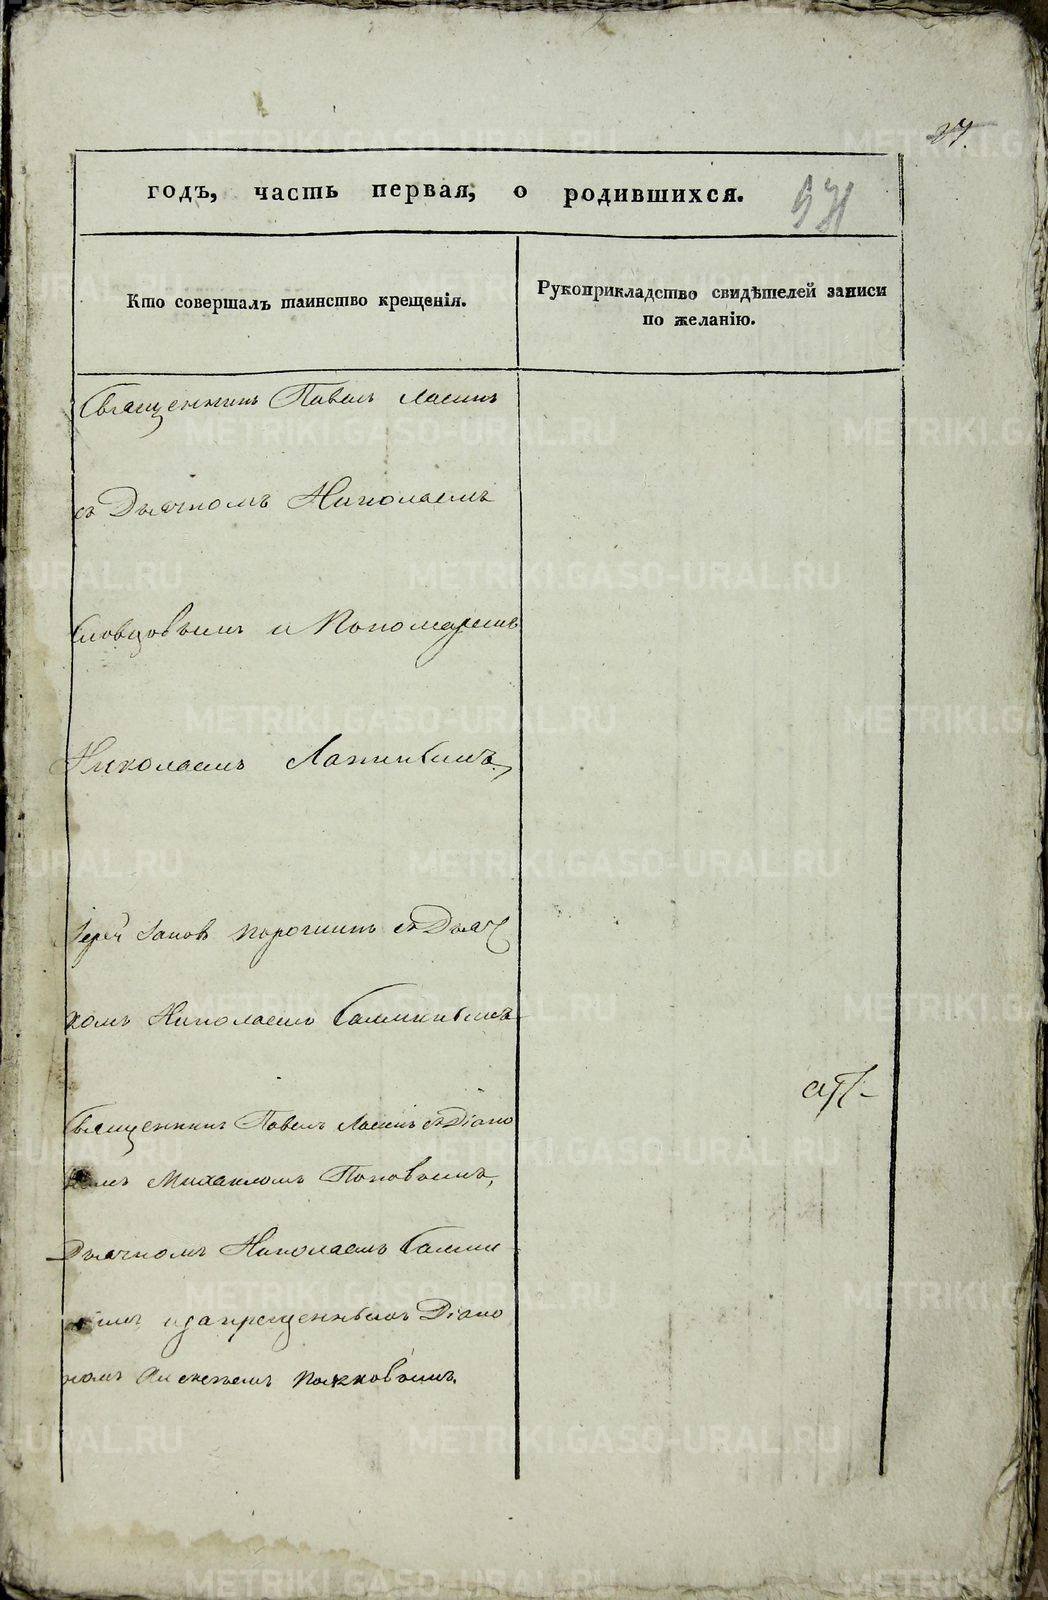 27.
годъ, часть первая, о родившихся.
Кто совершалъ таинство крещенія.
Рукоприкладство свидѣтелей записи
по желанію.
Священникъ Павелъ Ласинъ
съ Дьячкомъ Николаемъ
Словцовымъ и Пономаремъ
Николаемъ
Іерей Іаковъ Порошинъ съ Дьяч
комъ Николаемъ
Священникъ Павелъ Ласинъ съ Діако
номъ Михаиломъ Поповымъ,
Дьячкомъ Николаемъ
и запрещеннымъ Діако
номъ Алексѣемъ
METRIKI.GASO-URAL.RU